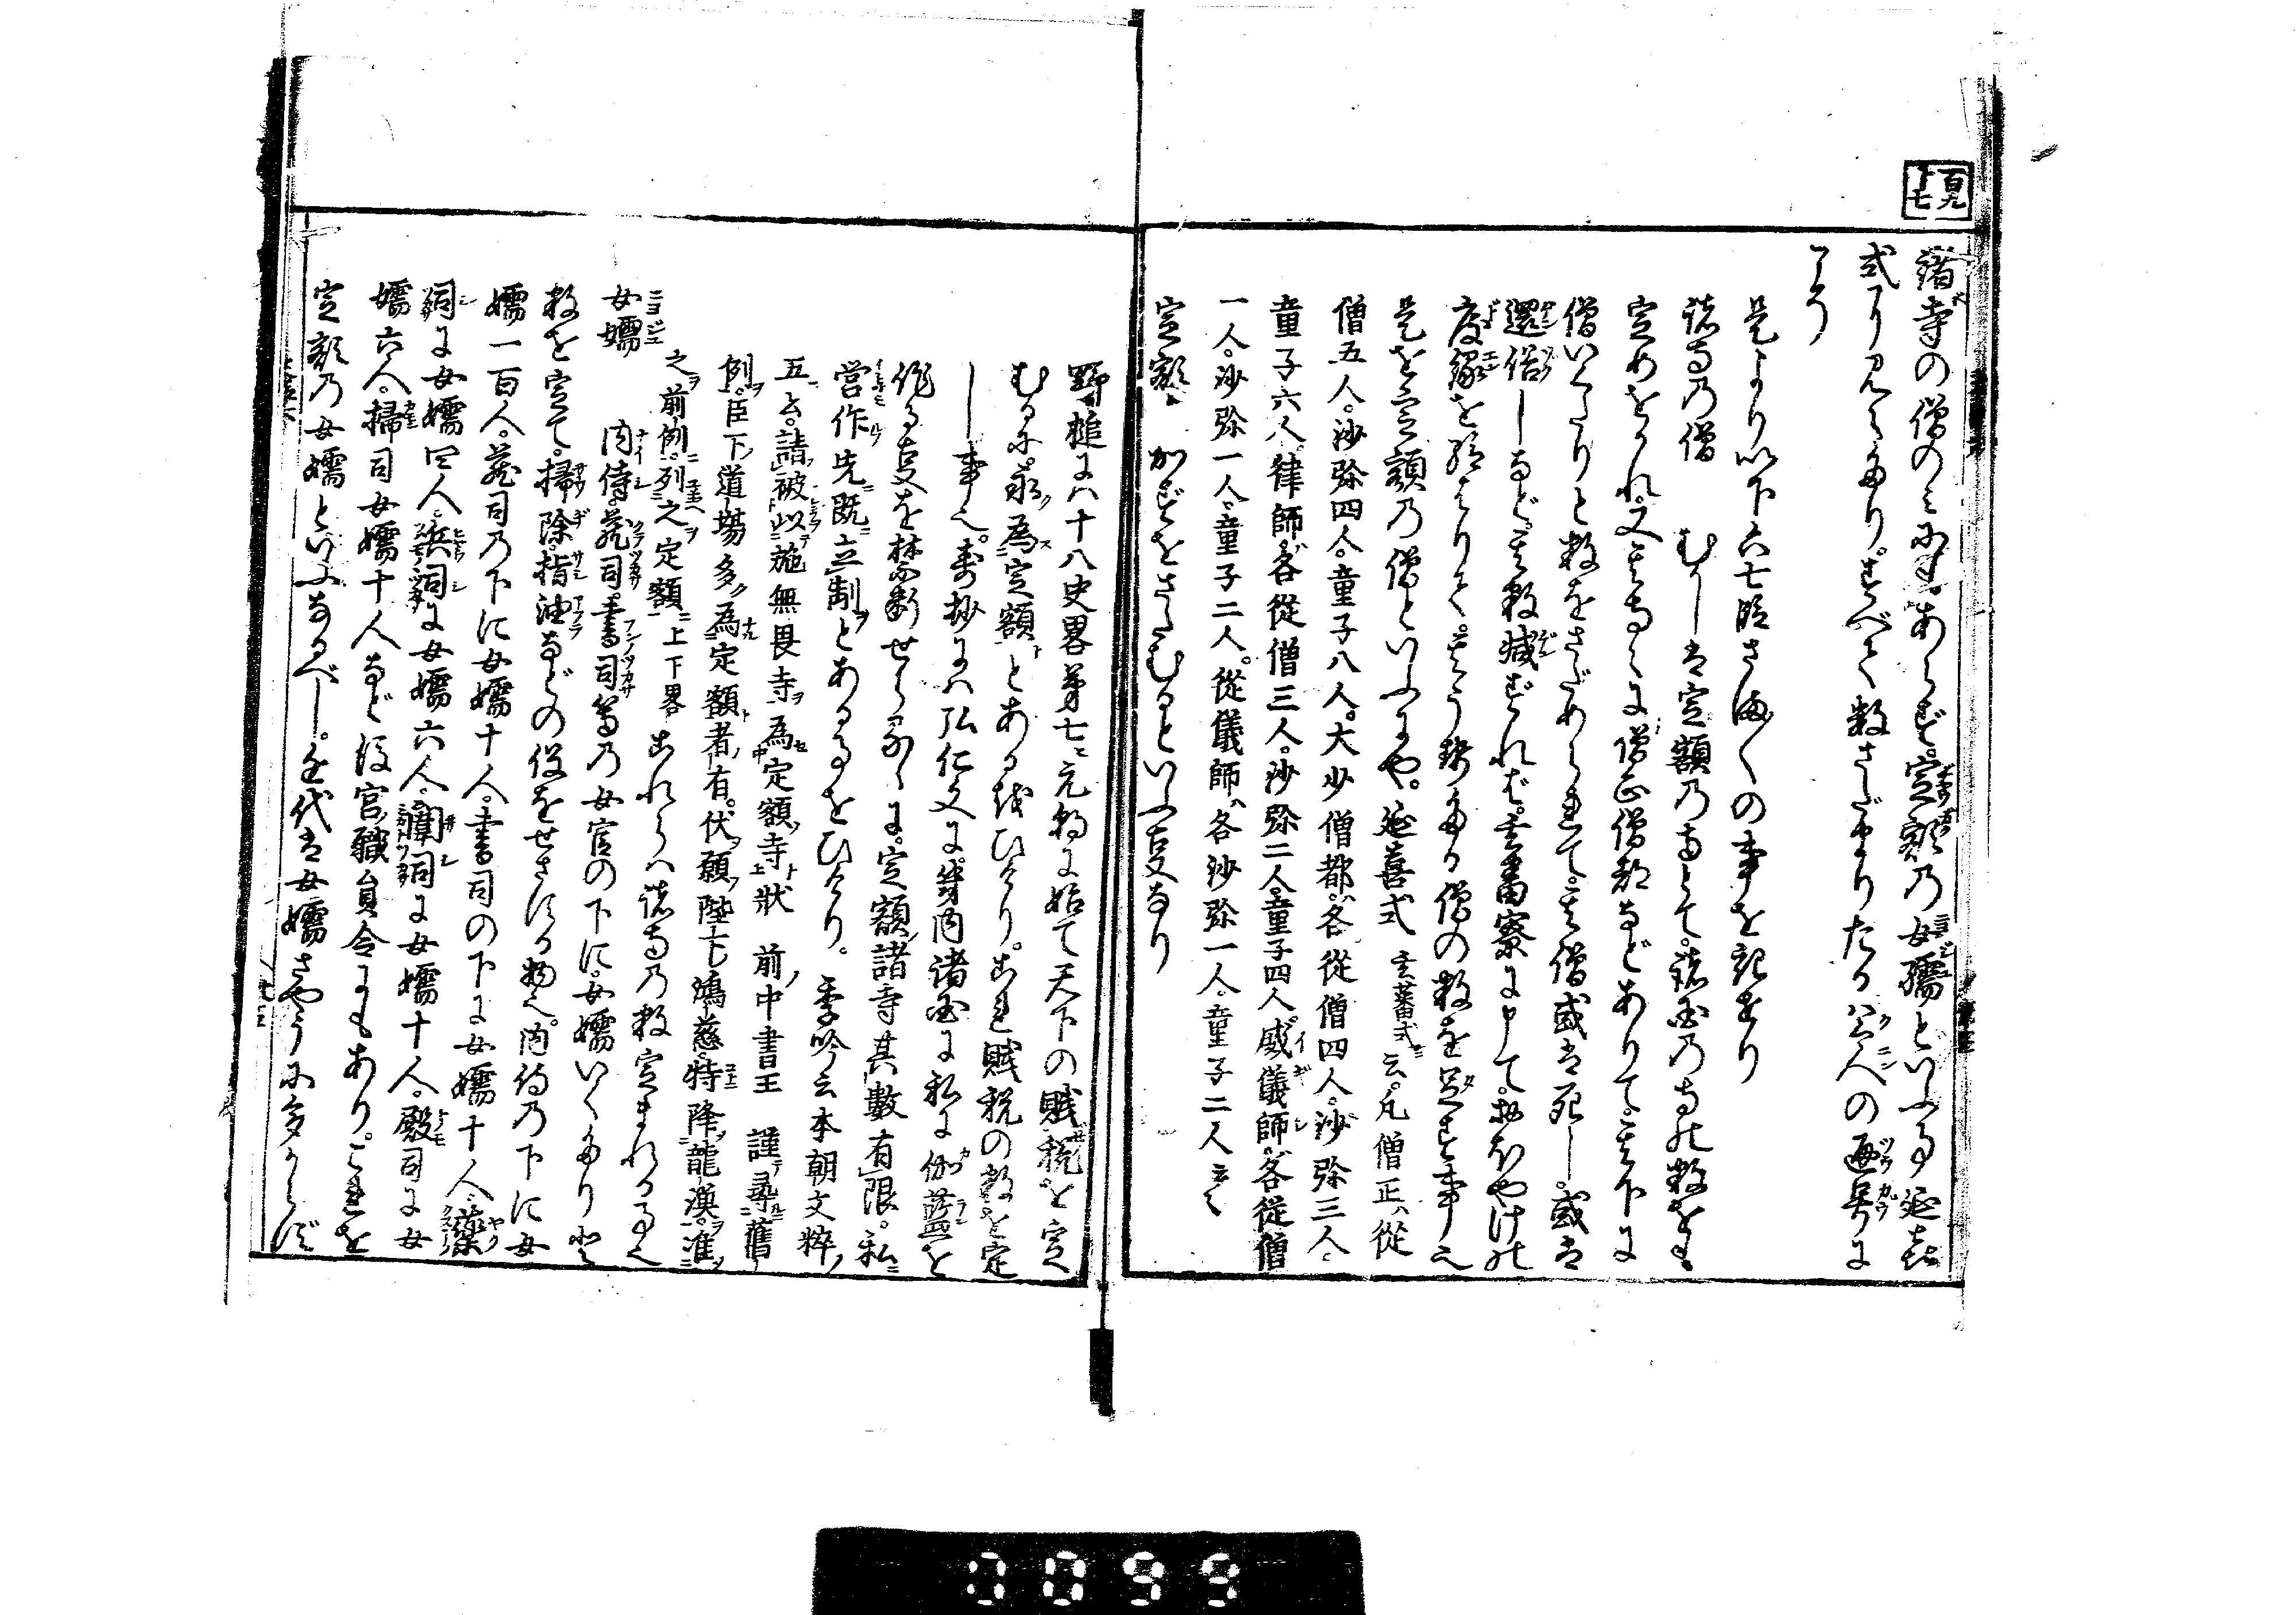 百九
十七
諸寺の僧のみにもあらず。定額の女孺といふ事延喜
式にり見えたり。すべて数さだまりたる公人の通号に
こそ
是より以下六七段さま〴〵の事を記せり
諸寺の僧 むかしは定額の寺とて。諸国の寺の数をも
定めをかれ。又其寺々に僧正僧都などありて。其下に
僧いくたりと数をさだめられて。其僧或は死し。或は
還俗しなど。其数減ずれば。玄蕃寮に申て。おほやけの
度縁を給はりて。其う勢たる僧の数を足す事也
是を定額の僧といふにや。延喜式 玄蕃式ニ 云。凡僧正ハ從
僧五人。沙弥四人。童子八人。大少僧都ハ各從僧四人。沙弥三人。
童子六人。律師ハ各從僧三人。沙弥二人。童子四人。威儀師ハ各從僧
一人。沙弥一人。童子二人。從儀師ハ各沙弥一人。童子二人云々
定額ハ かずをさだむるといふ更なり
野槌には十八史畧第七ニ元朝に始て天下の賦税を定
むるに。永為定額とあるをひけり。これ賦税の数を定
し事也。壽抄には弘仁文に。幾内諸国に私に伽藍を
作る支を禁断せらるゝに。定額諸寺其數有限。私ニ
営作先既ニ立制とある事をひけり。 季吟云本朝文粹ノ
五ニ云。請被以施無畏寺為定額寺状 前ノ中書王 謹尋舊
例。臣下道場多為定額者有。伏願陛下鴻慈。特降龍漢。准
之前例。列之定額 上下畧 これらハ諸寺の数定まれる事也
女孺 内侍。蔵司。書司等の女官の下に。女孺いくたりと
数を定て。掃除。指油などの役をせさする物也。内侍の下に女
孺一百人。蔵司の下に女孺十人。書司の下に女孺十人。藥
司に女孺四人。兵司に女孺六人。闈司に女孺十人。殿司に女
孺六人。掃司女孺十人など後宮職員令にもあり。これを
定額の女孺といふなるべし。近代は女孺さやうに多からず